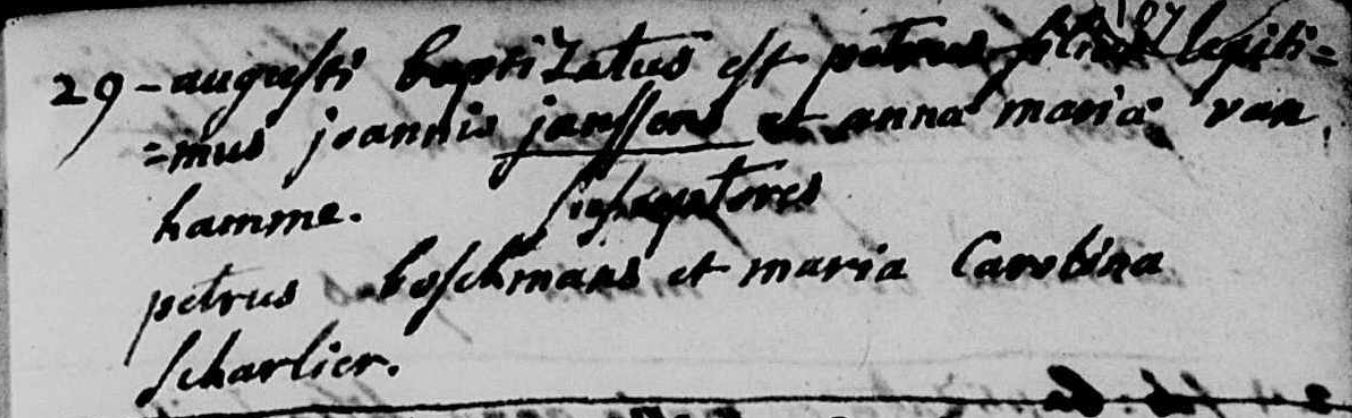 29 - augusti baptizatus est petrus filius legiti=
=mus joannis janssens et anna maria van
hamme. susceptores
petrus boschmans et maria Carolina
scharlier.